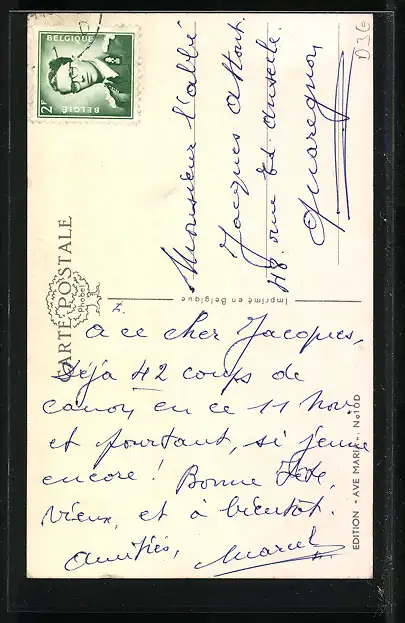 BELGIQUE
2F
BELGIË
CARTE POSTALE
Phobel
Monsieur l'abbé
Jacques
48. rue
Quaregnon
Imprimé en Belgique
A ce cher Jacques,
Déjà 42 coups de
canon en ce 11 nov.
et pourtant, si jeune
encore! Bonne Fête,
vieux, et à bientôt.
Amitiés, Marcel
EDITION - AVE MARIA -. No10D
D3E